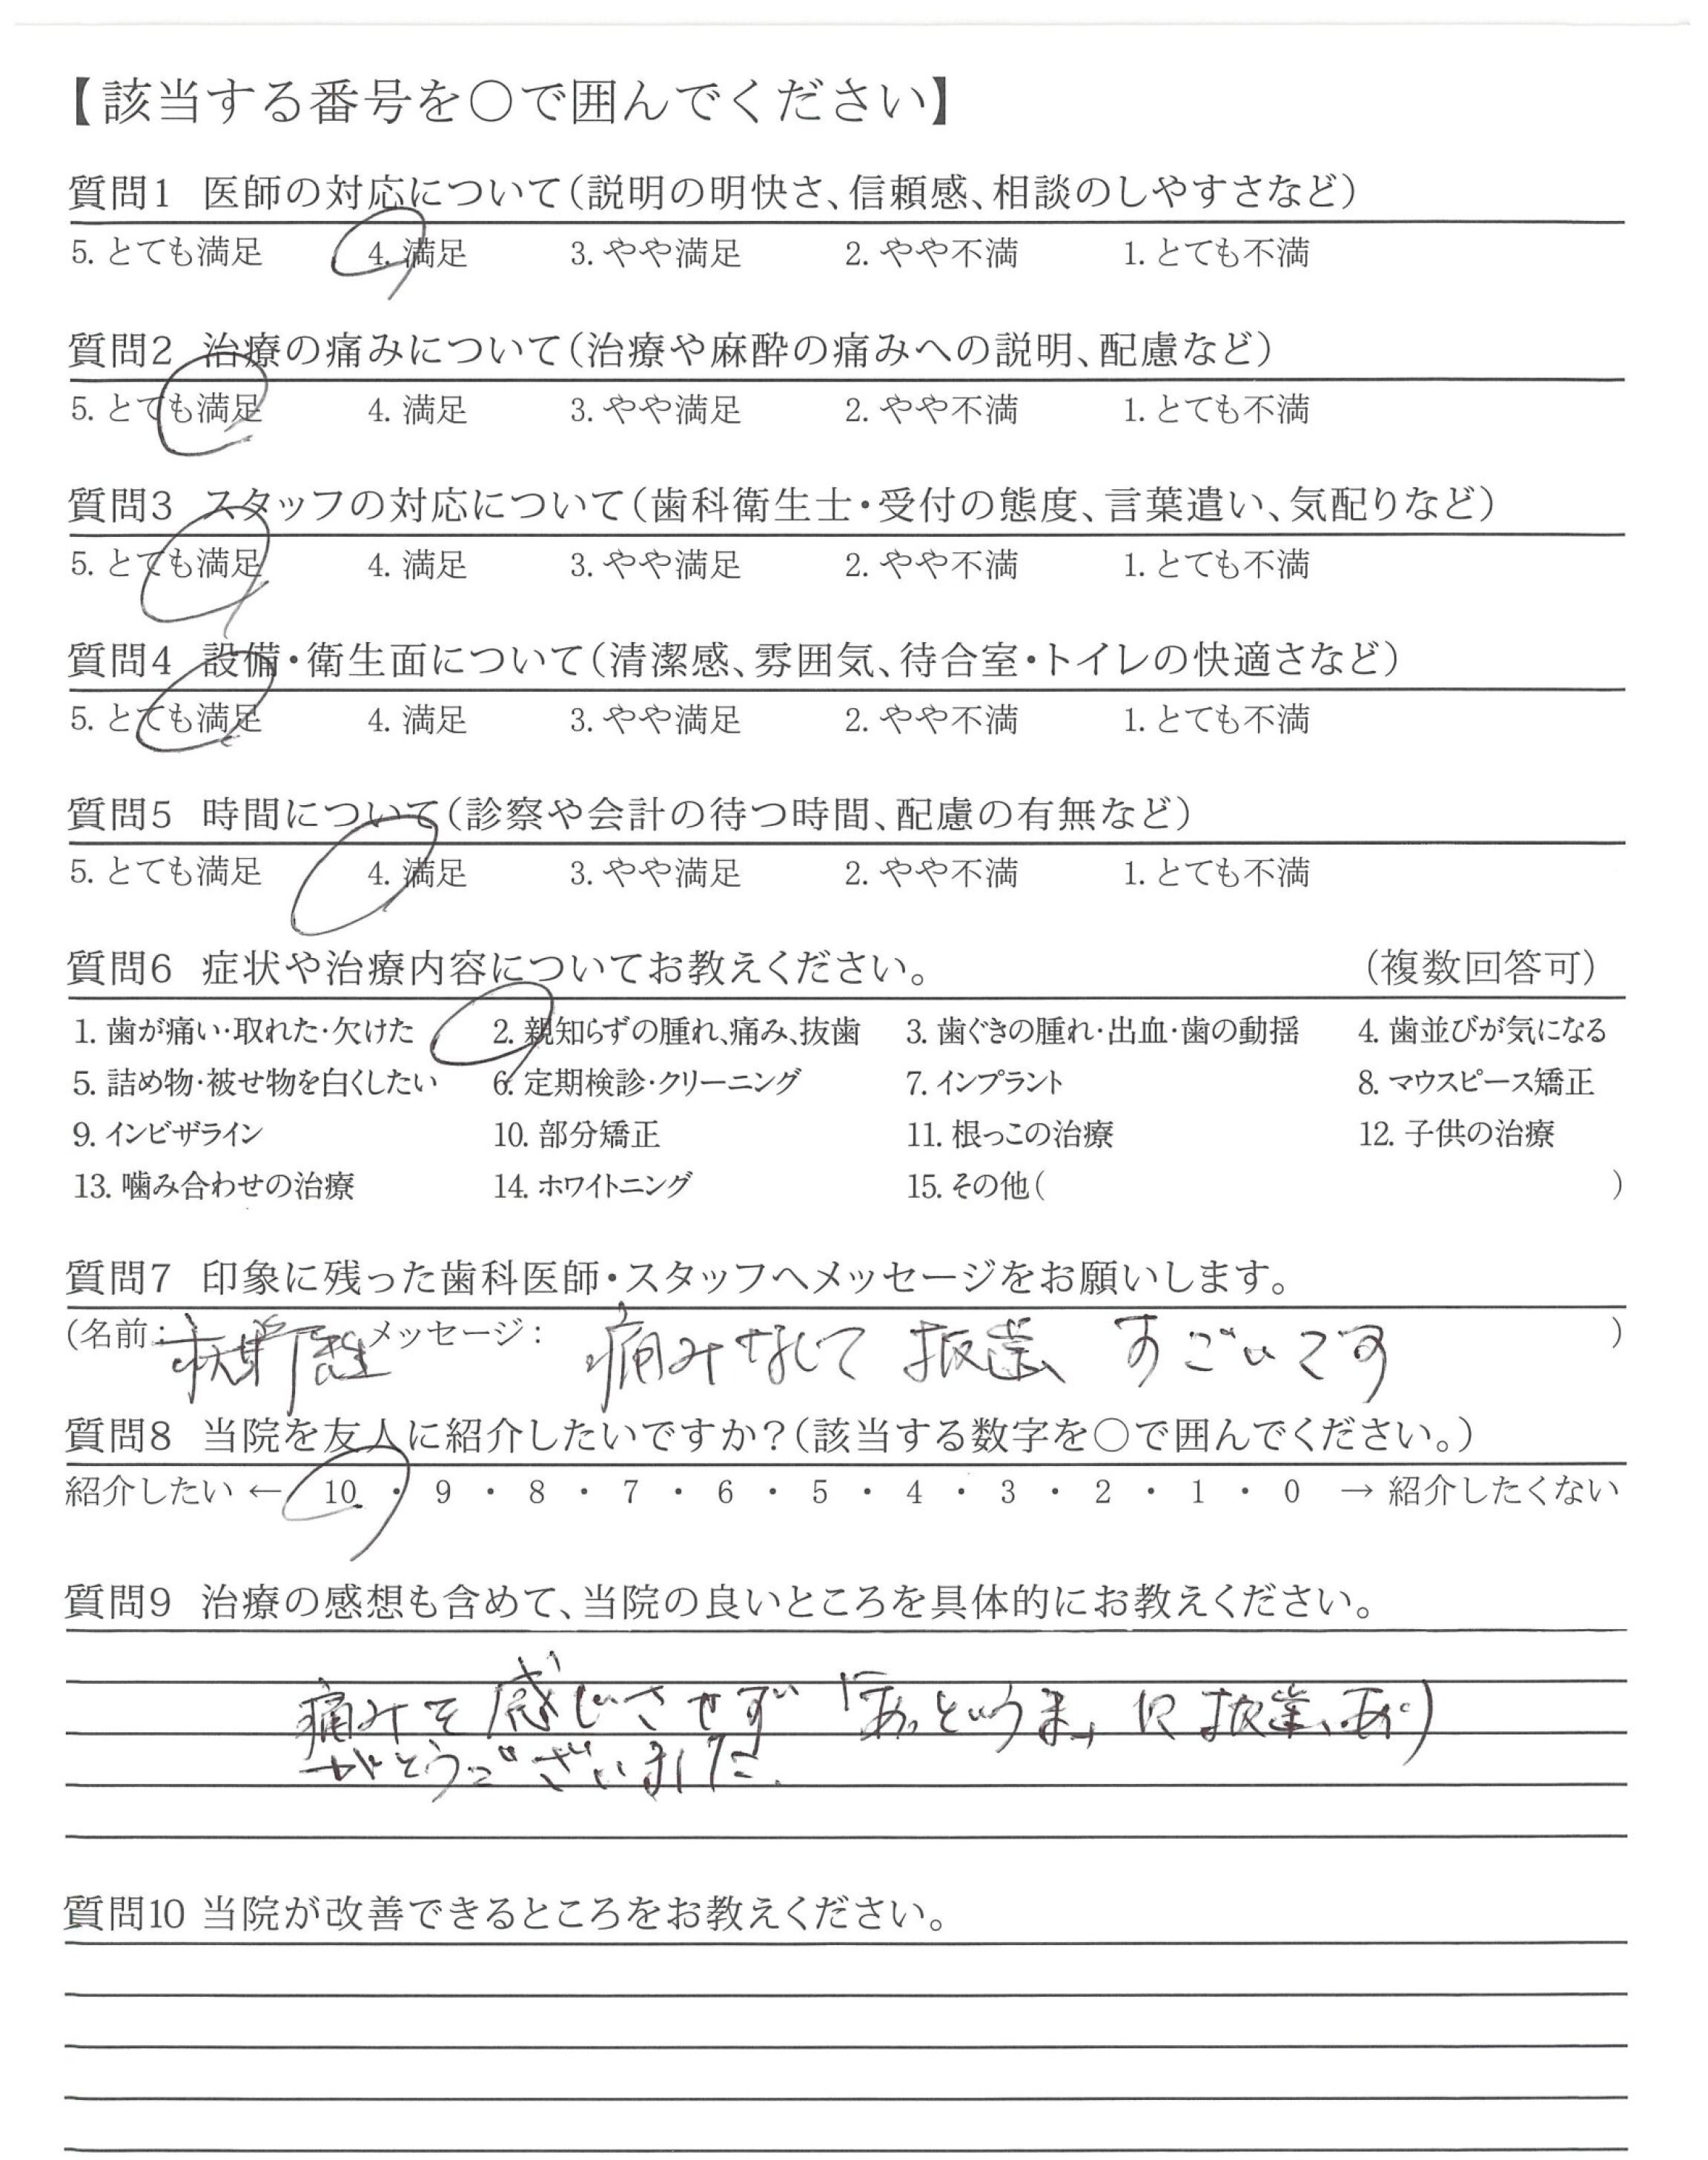 【該当する番号を〇で囲んでください】
質問1 医師の対応について(説明の明快さ、信頼感、相談のしやすさなど)
5. とても満足 4. 満足 3. やや満足 2. やや不満 1. とても不満
質問2 治療の痛みについて(治療や麻酔の痛みへの説明、配慮など)
5. とても満足 4. 満足 3. やや満足 2. やや不満 1. とても不満
質問3 スタッフの対応について(歯科衛生士・受付の態度、言葉遣い、気配りなど)
5. とても満足 4. 満足 3. やや満足 2. やや不満 1. とても不満
質問4 設備・衛生面について(清潔感、雰囲気、待合室・トイレの快適さなど)
5. とても満足 4. 満足 3. やや満足 2. やや不満 1. とても不満
質問5 時間について(診察や会計の待つ時間、配慮の有無など)
5. とても満足 4. 満足 3. やや満足 2. やや不満 1. とても不満
質問6 症状や治療内容についてお教えください。 (複数回答可)
1. 歯が痛い・取れた・欠けた 2. 親知らずの腫れ、痛み、抜歯 3. 歯ぐきの腫れ・出血・歯の動揺 4. 歯並びが気になる
5. 詰め物・被せ物を白くしたい 6. 定期検診・クリーニング 7. インプラント 8. マウスピース矯正
9. インビザライン 10. 部分矯正 11. 根っこの治療 12. 子供の治療
13. 噛み合わせの治療 14. ホワイトニング 15. その他( )
質問7 印象に残った歯科医師・スタッフへメッセージをお願いします。
(名前: メッセージ: 痛みなしで 抜歯 すごいです )
質問8 当院を友人に紹介したいですか?(該当する数字を〇で囲んでください。)
紹介したい ← 10 ・ 9 ・ 8 ・ 7 ・ 6 ・ 5 ・ 4 ・ 3 ・ 2 ・ 1 ・ 0 → 紹介したくない
質問9 治療の感想も含めて、当院の良いところを具体的にお教えください。
痛みを感じさせず「あっというま」に抜歯、あり
がとうございました。
質問10 当院が改善できるところをお教えください。